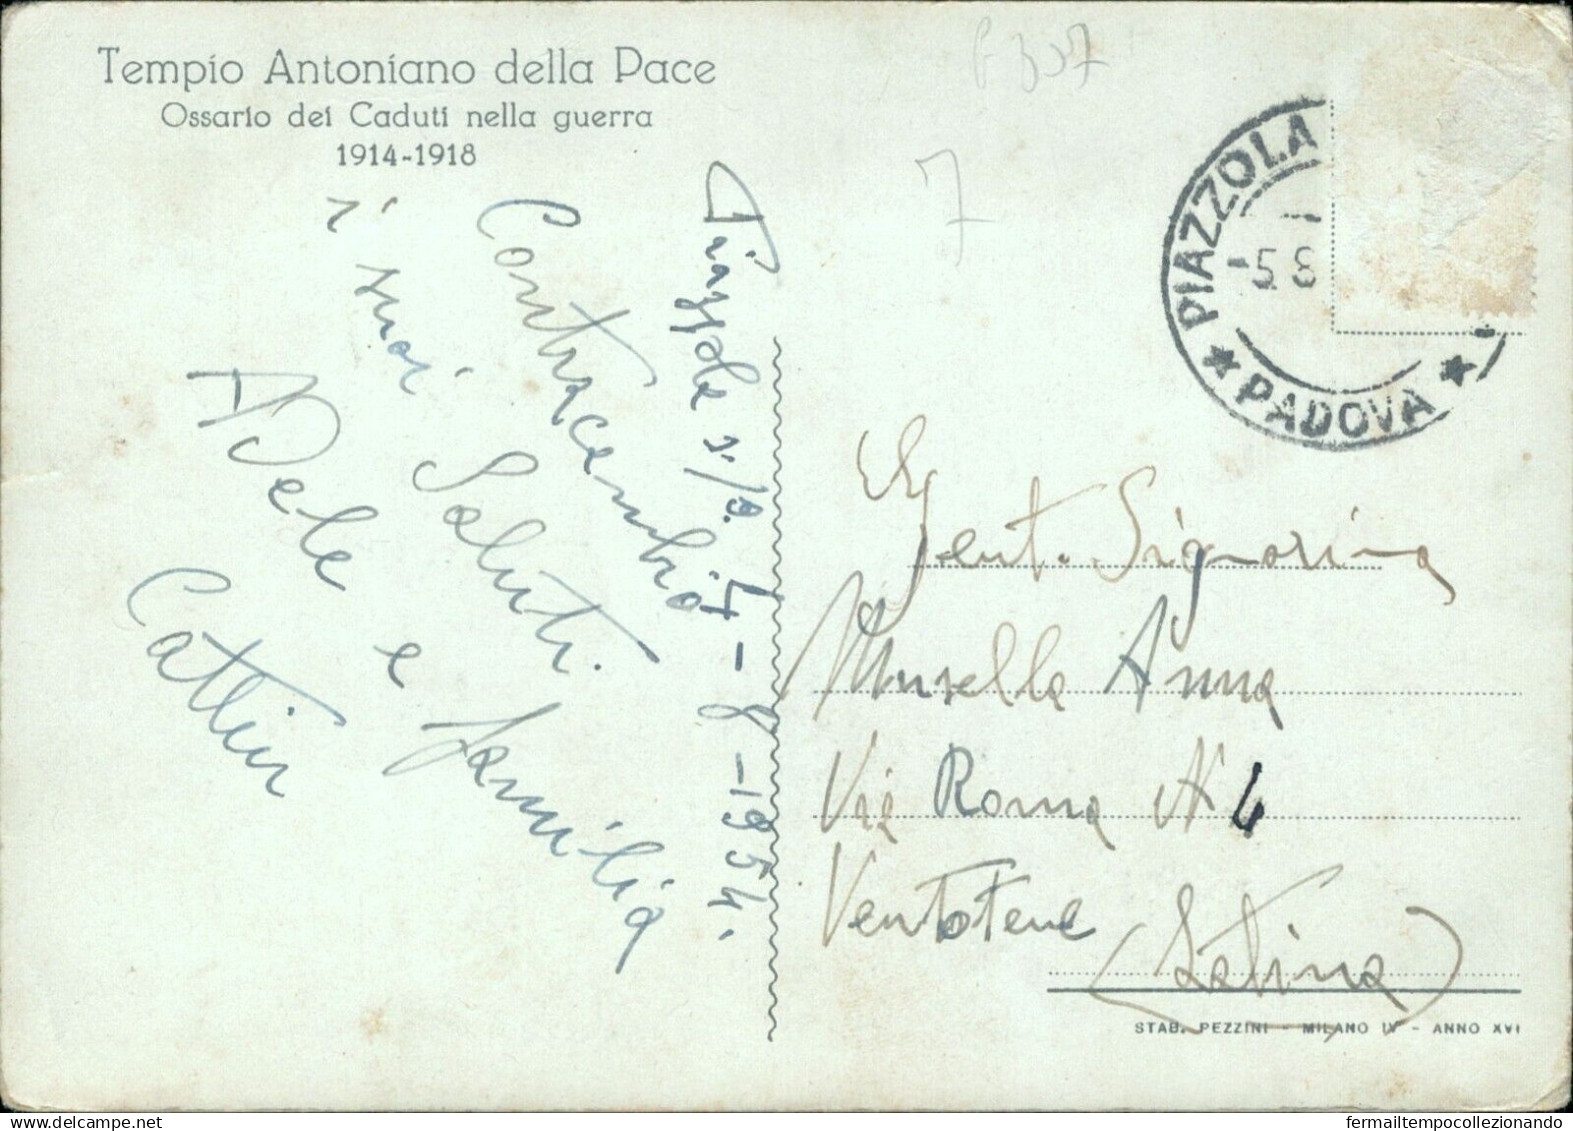 Tempio Antoniano della Pace
Ossario dei Caduti nella guerra
1914-1918
P 307
7
PIAZZOLA
-5.8
PADOVA
Piazzola s/B. 4-8-1954.
Contracambio
i suoi Saluti.
Adele e famiglia
Cattin
Gent. Signorina
Musella Anna
Via Roma N 4
Ventotene
(Latina)
STAB. PEZZINI - MILANO IV - ANNO XVI
fermailtempocollezionando